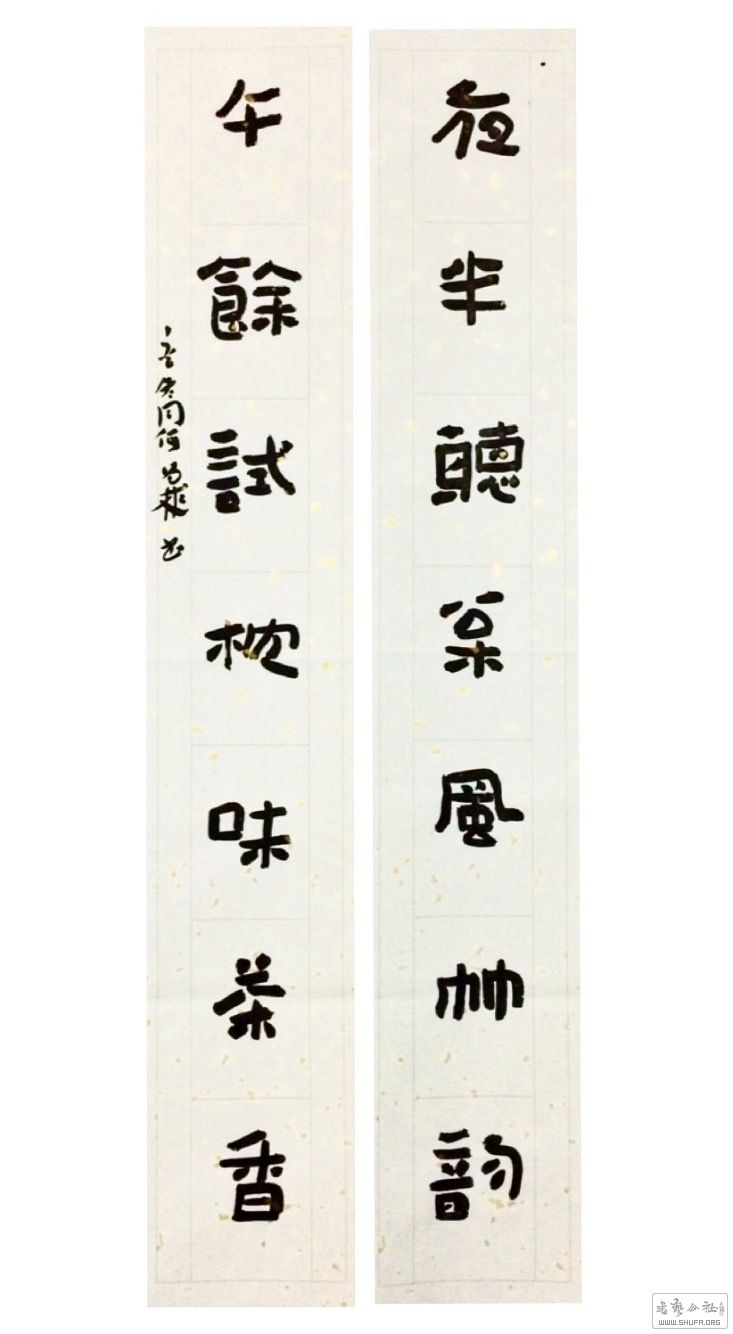 夜半聽枀風竹韵
午餘試枕味茶香
書藝公社
WWW.SHUFA.ORG